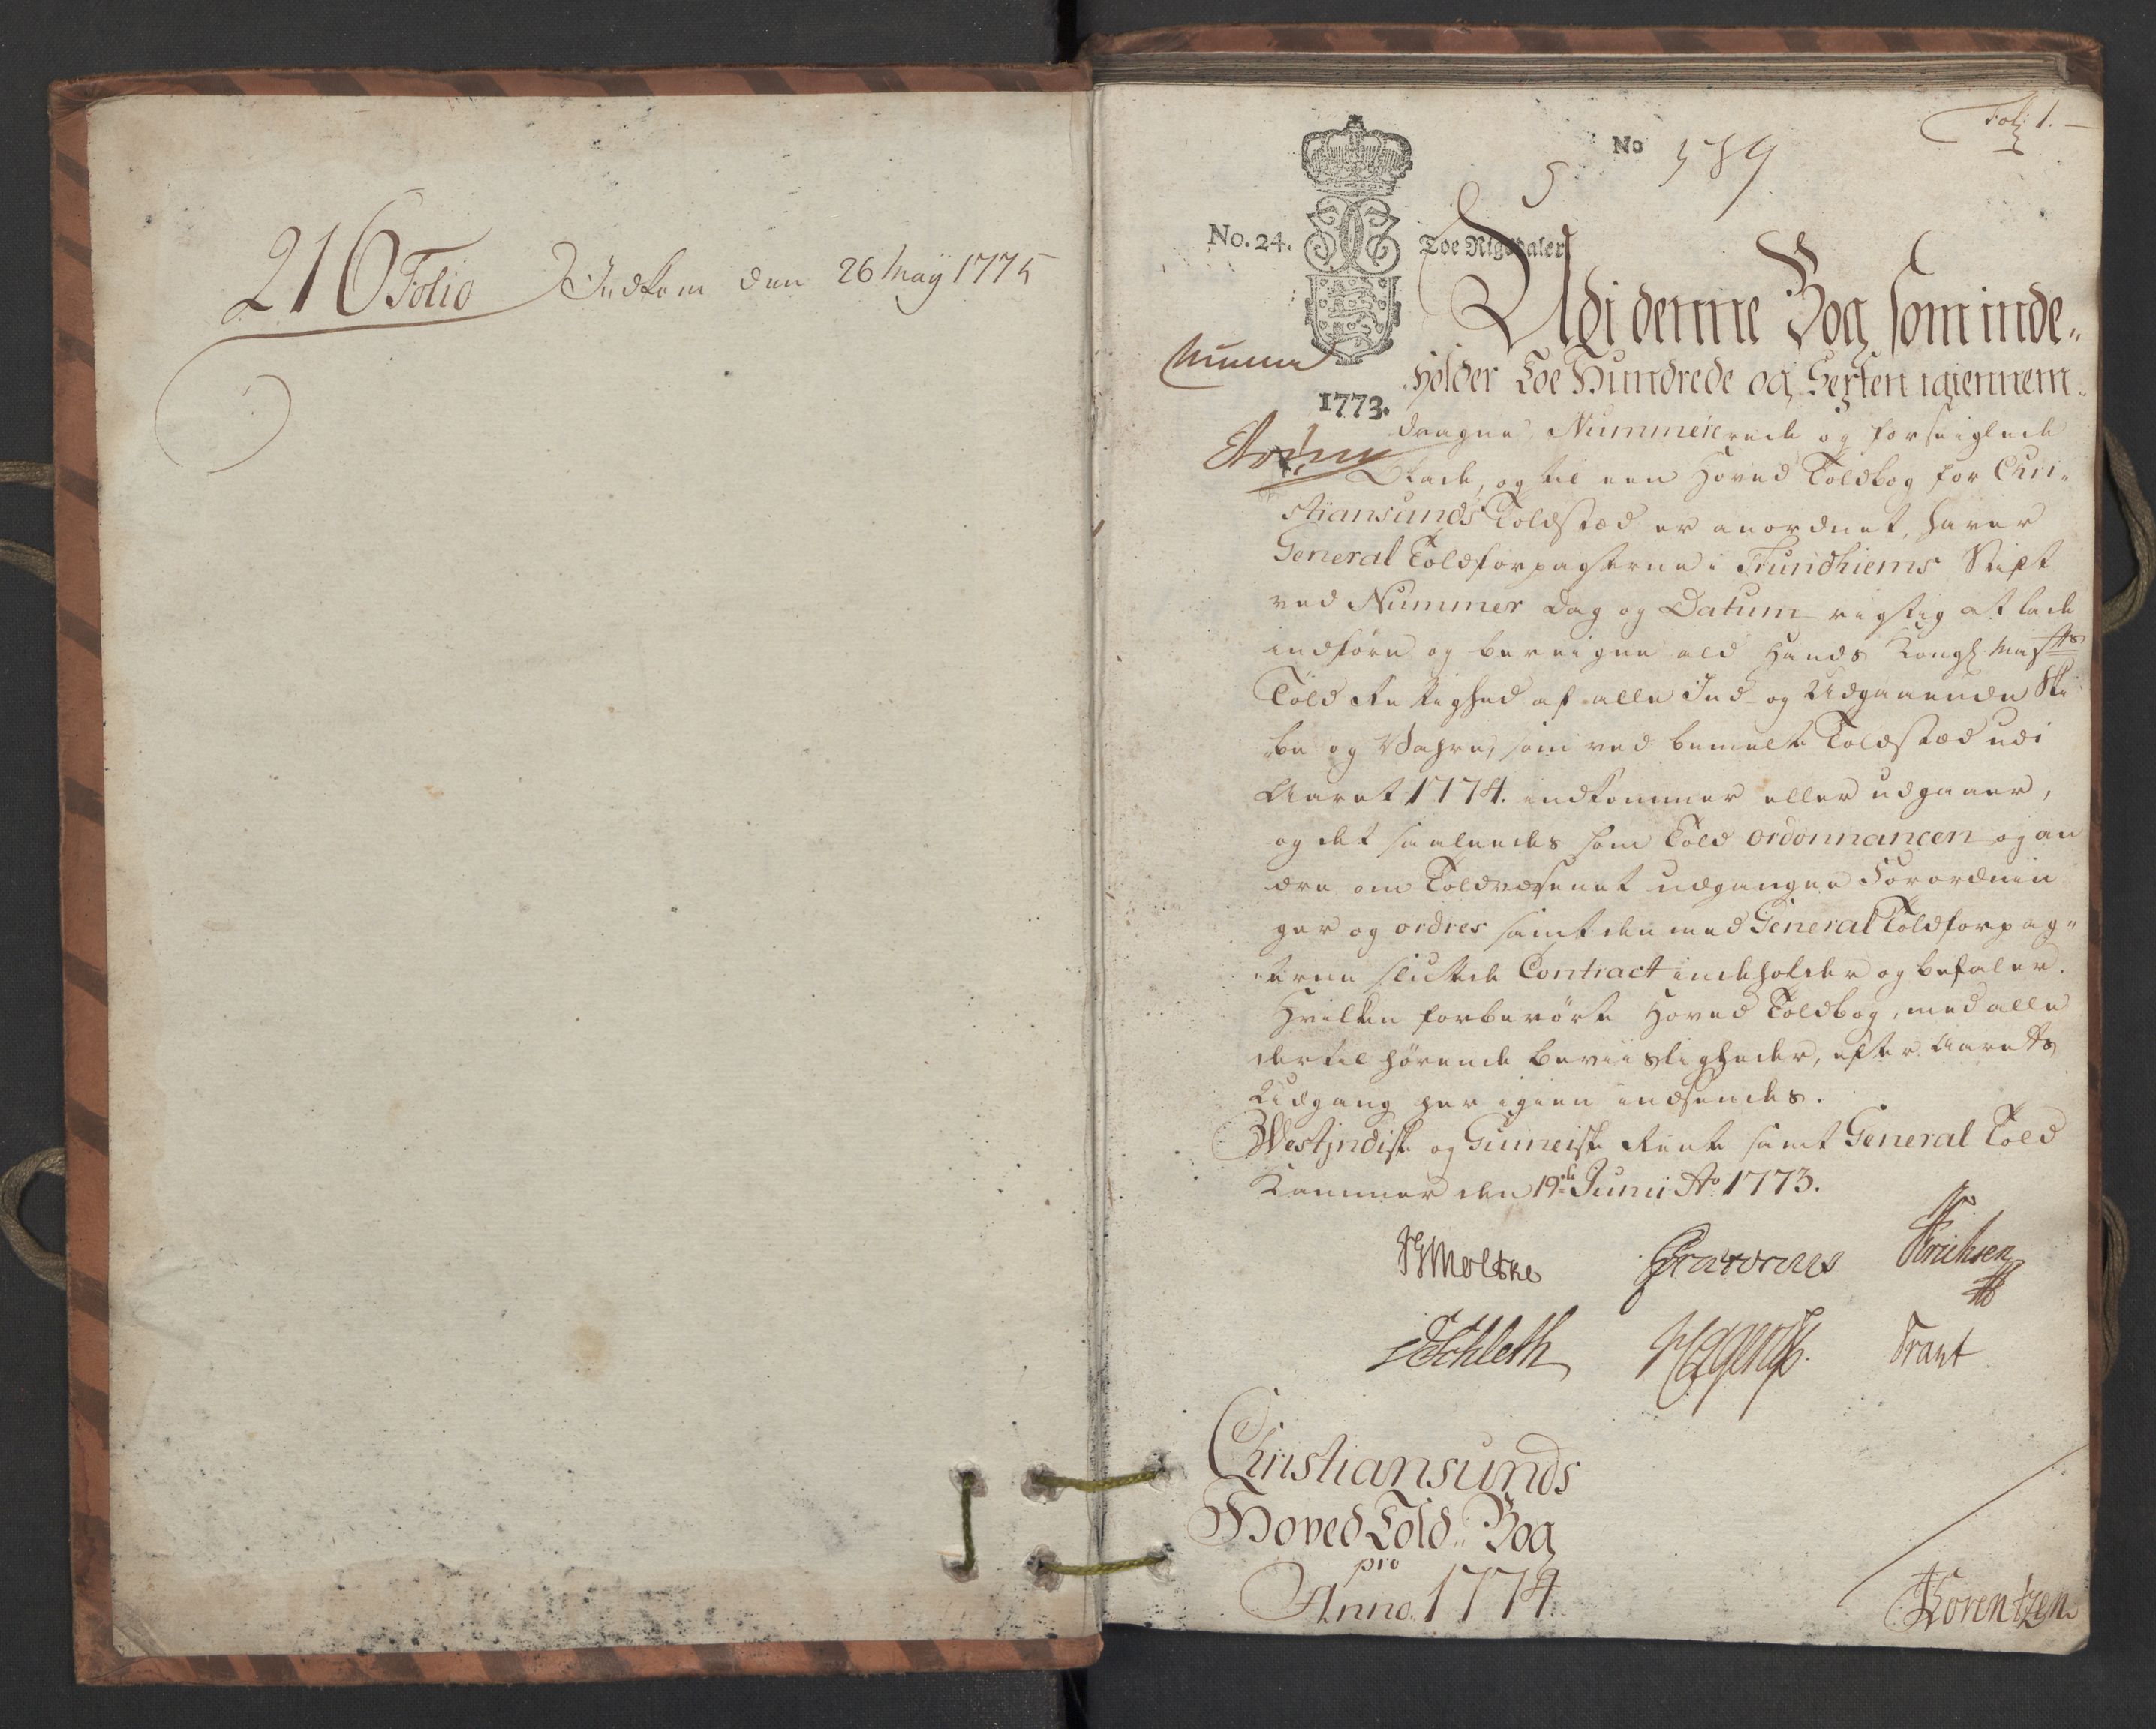 216 Folio
Indkom den 26 Maÿ 1775
Fol: 1.
No 589
No. 24.
Toe Rigsdaler
1773.
Udi denne Bog som inde„
holder Toe Hundrede og Sexten igiennem„
dragne, Nummererede og forseiglede
Blade, og til een Hoved Toldbog for Chri„
stiansunds Toldstæd er anordnet, haver
General Toldforpagterne i Trundhiems Stift
ved Nummer Dag og Datum rigtig at lade
indføre og beregne ald Hands Kongl. Maÿtts
Told Rettighed af alle Ind- og Udgaaende Ski
„be og Wahre, som ved bemelte Toldstæd udi
Aaret 1774. indkommer eller udgaaer,
og det saaledes som Told ordonnancen og an
dre om Toldvæsenet udgangne Forordnin
ger og ordres samt den med General Toldforpag„
„terne sluttede Contract indeholder og befaler.
Hvilken forberørte Hoved Toldbog, med alle
dertil hørende beviisligheder, efter Aarets
Udgang her igien indsendes.
Westjndisk og Guineisk Rente samt General Told
Kammer den 19de Junii Ao 1773.
Moltske
Erichsen
Schleth
Trant
Christiansunds
Hoved Told„ Bog
pro
Anno 1774
Lorentzen